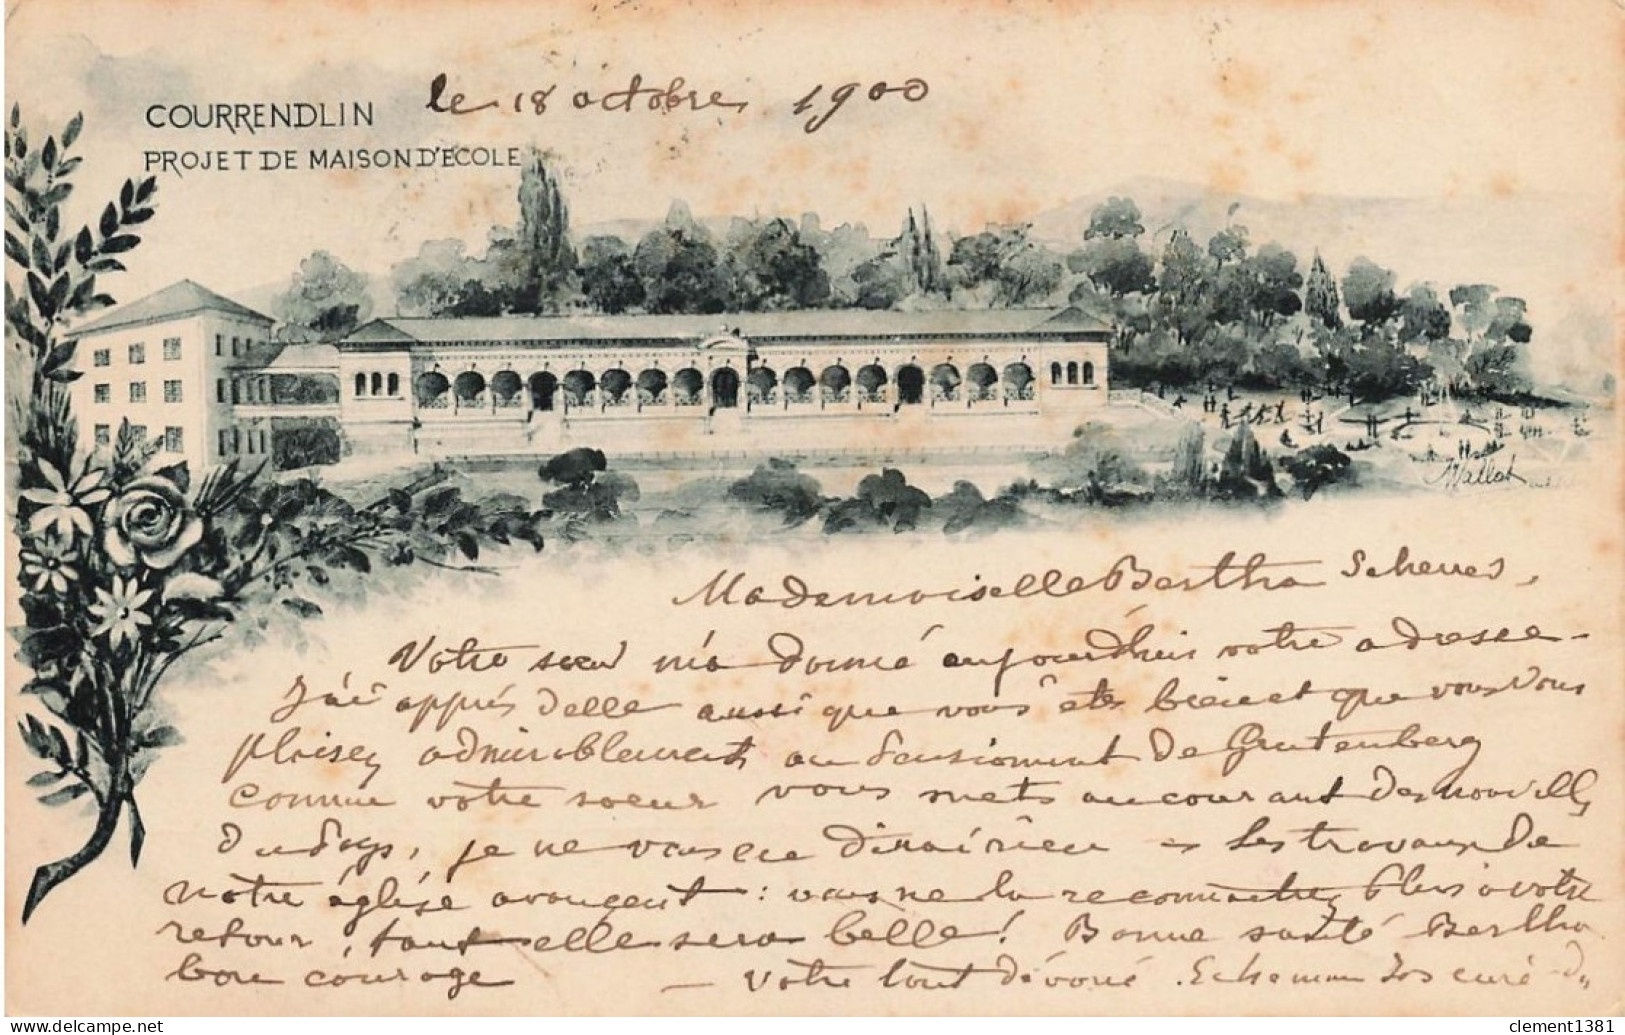 COURRENDLIN
le 18 octobre 1900
PROJET DE MAISON D'ECOLE
Mallot
Mademoiselle Bertha Scherres,
Votre sœur m'a donné aujourdhui votre adresse -
J'ai appris d'elle aussi que vous êtes bien et que vous vous
plaisez admirablement au Pensionnat de Gutenberg
Comme votre soeur vous mets au courant des nouvelles
du Pays, je ne vous en dirai rien - Les travaux de
notre église avançent : vous ne la reconnaitrez plus à votre
retour, tant elle sera belle ! Bonne santé Bertha
bon courage - Votre tout dévoué . curé
clement1381